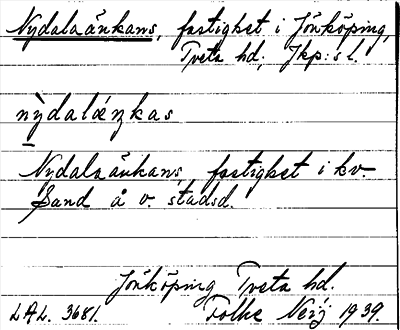 Nydalaänkans, fastighet i Jönköping,
Tveta hd; Jkp:s l.
nỳdaláŋkas
Nydalaänkans, fastighet i kv.
Sand å v. stadsd.
Jönköping Tveta hd.
LAL. 3681. Folke Neij 1939.